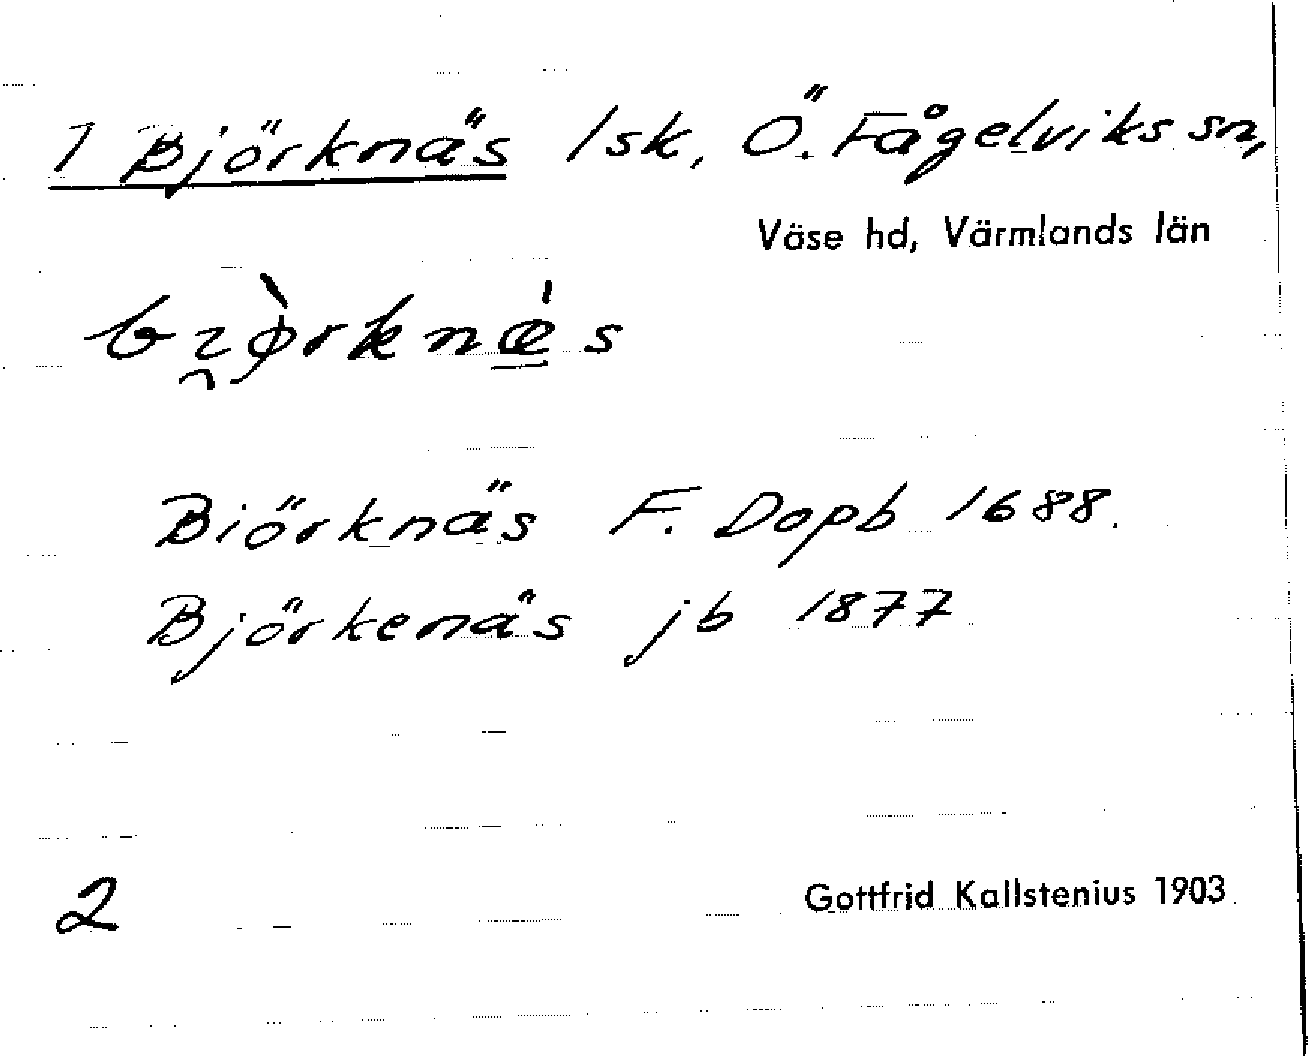 1 Björknäs lsk, Ö. Fågelviks sn,
Väse hd, Värmlands län
Biörknäs F. Dopb 1688.
Björkenäs jb 1877
2
Gottfrid Kallstenius 1903